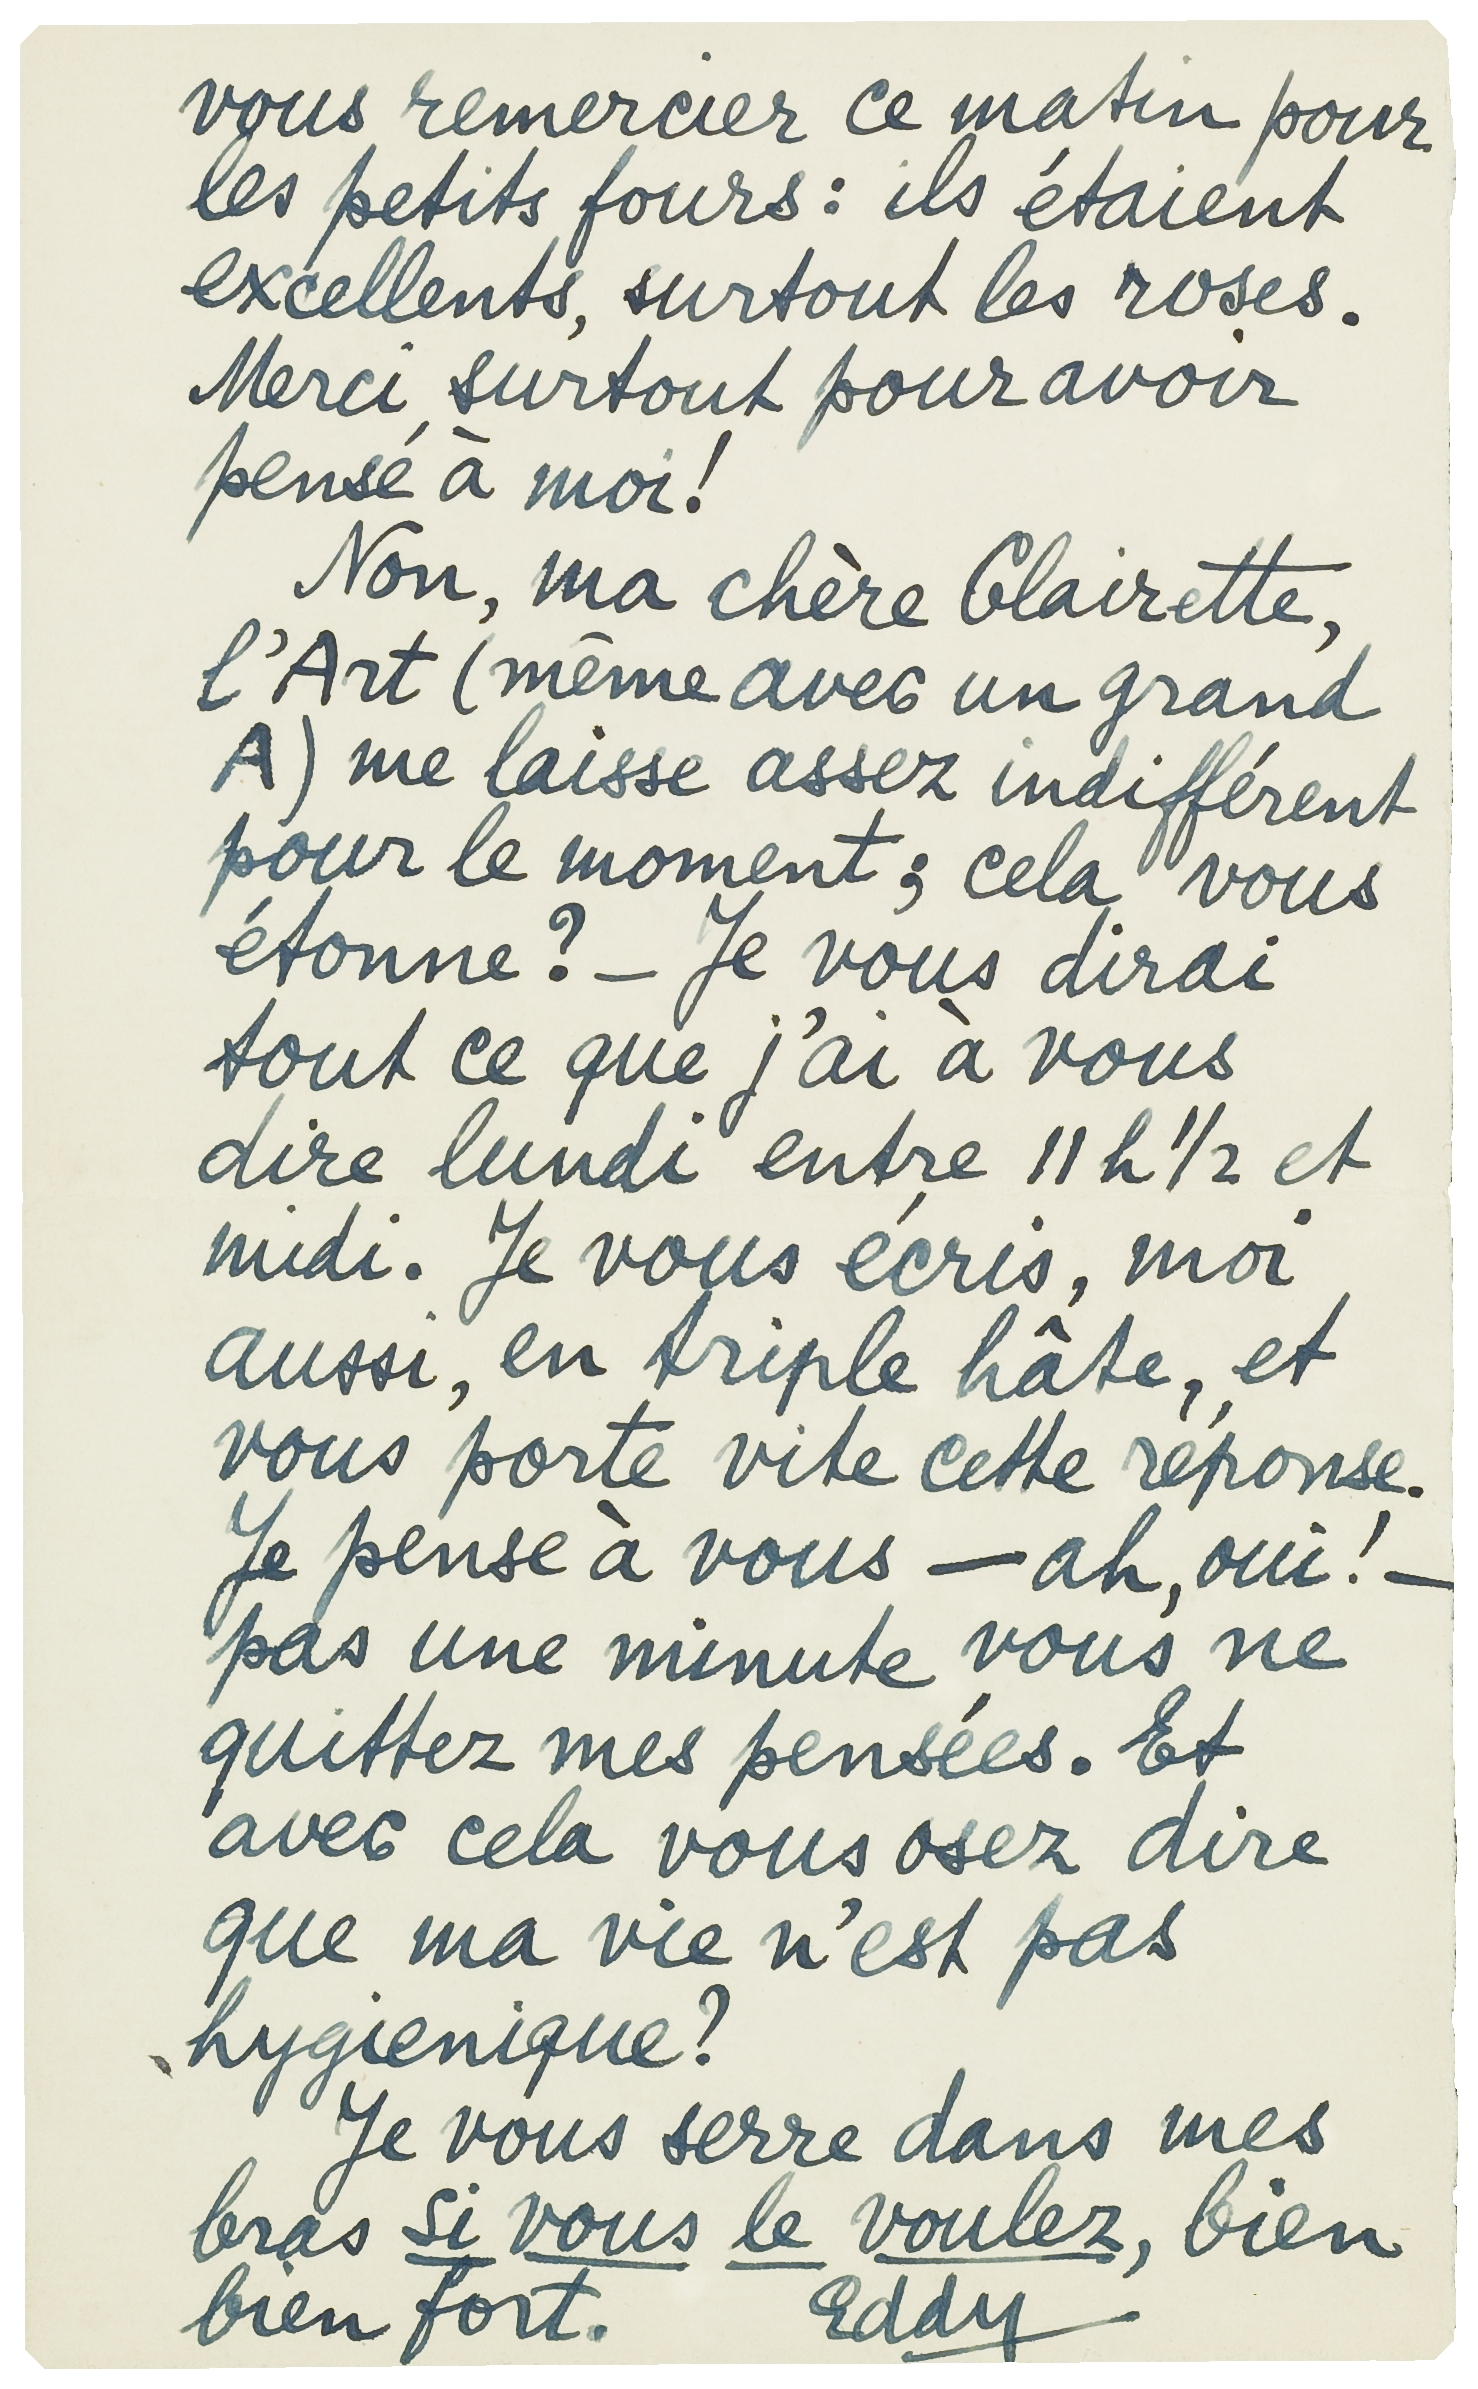 vous remercier ce matin pour
les petits fours : ils étaient
excellents, surtout les roses.
Merci, surtout pour avoir
pensé à moi!
Non, ma chère Clairette,
l'Art (même avec un grand
A) me laisse assez indifférent
pour le moment ; cela vous
étonne? – Je vous dirai
tout ce que j'ai à vous
dire lundi entre 11 h 1/2 et
midi. Je vous écris, moi
aussi, en triple hâte, et
vous porte vite cette réponse.
Je pense à vous – ah, oui! –
pas une minute vous ne
quittez mes pensées. Et
avec cela vous osez dire
que ma vie n'est pas
hygienique?
Je vous serre dans mes
bras si vous le voulez, bien
bien fort. Eddy